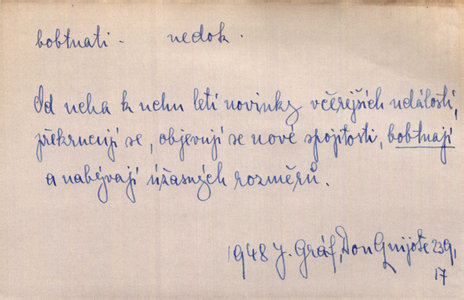 bobtnati - nedok.
Od ucha k uchu letí novinky včerejších událostí,
překrucují se, objevují se nové spojitosti, bobtnají
a nabývají úžasných rozměrů.
1948 J. Gráf, Don Quijote 239,
17